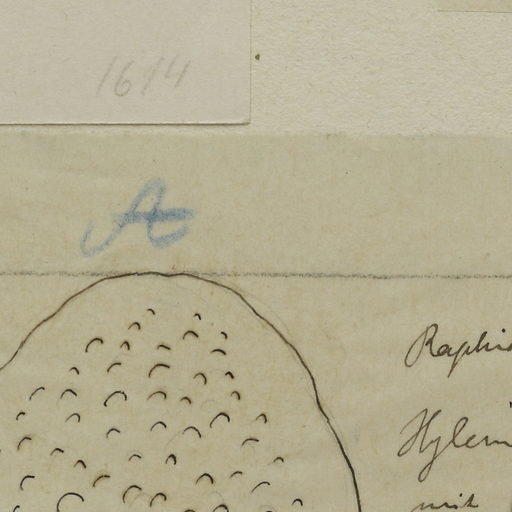 1614
A
Raphid
Hyleni
mit